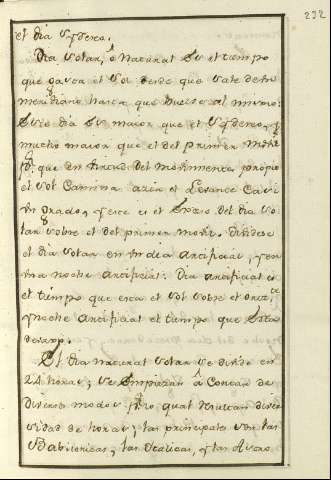 232
el dia sydereo.
Dia solar, ô natural es el tiempo
que gasta el Sol desde que sale de su
meridiano hasta que buelve al mismo:
este dia es maior que el sydereo, y
mucho maior que el del primer mobil
pr. que en virtud del movimiento proprio
el Sol camina azia el Levante casi
un grado, y este es el exceso del dia so-
lar sobre el del primer mobil. Dividese
el dia solar en un dia artificial, y en
una noche artificial. Dia artificial es
el tiempo que esta el sol sobre el orizte
y noche artificial el tiempo que esta
devaxo.
El dia natural solar se divide en
24 horas, y se empiezan â contar de
diversos modos pr. lo qual resultan diver-
sidad de horas; las principales son las
Babilonicas, las Italicas, y las Astro-